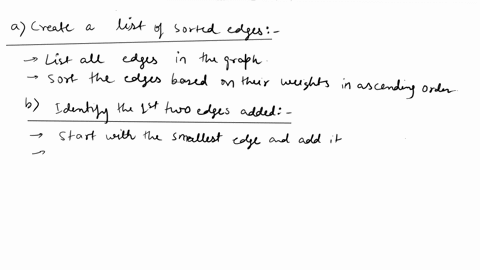 a) Create a list of sorted edges:-
→ List all edges in the graph.
→ Sort the edges based on their weights in ascending order
b) Identify the 1st two edges added:-
→ Start with the smallest edge and add it
→